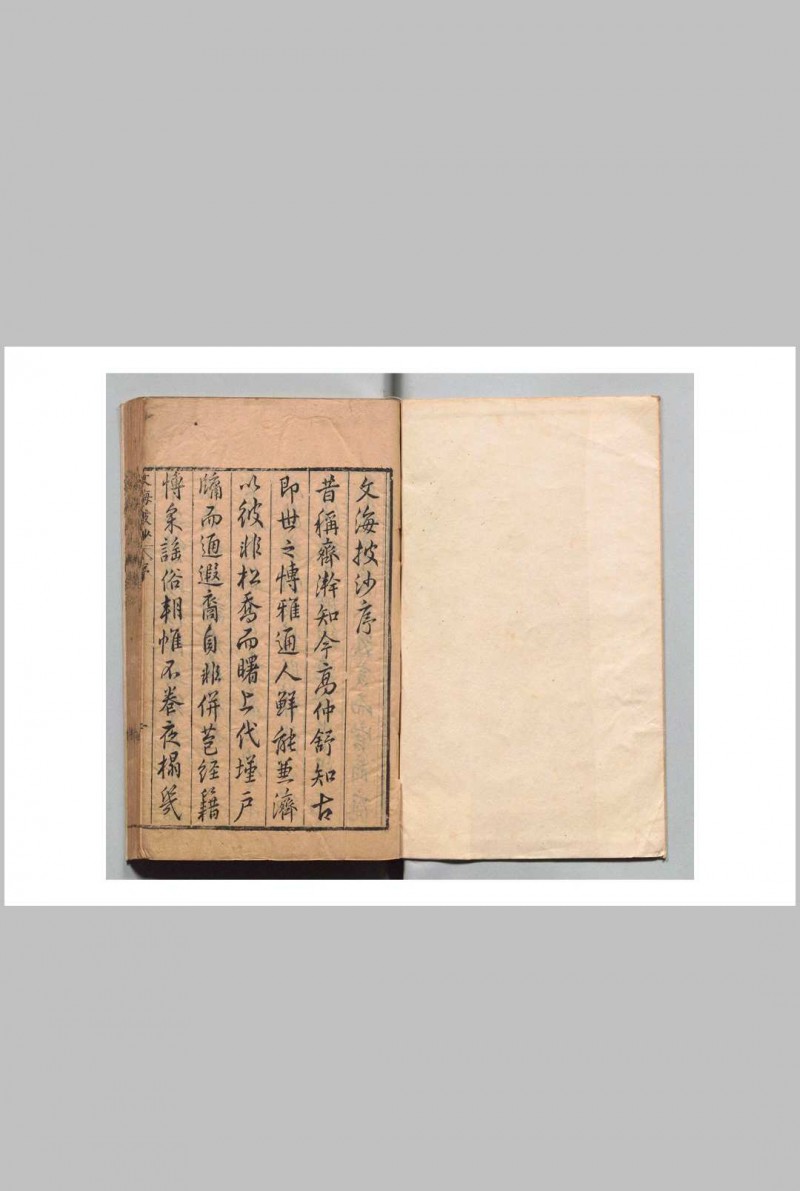 文海披沙序
昔稱齊澣知今高仲舒知古
即世之博雅通人鮮能兼濟
以彼非松喬而曙上代墐戶
牖而通遐裔自非併苞經籍
博采謠俗朝帷不卷夜榻幾
文海披沙 序